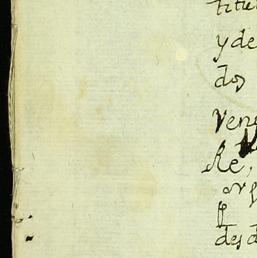 titu
y de
dos
vene
Re,
or
desd